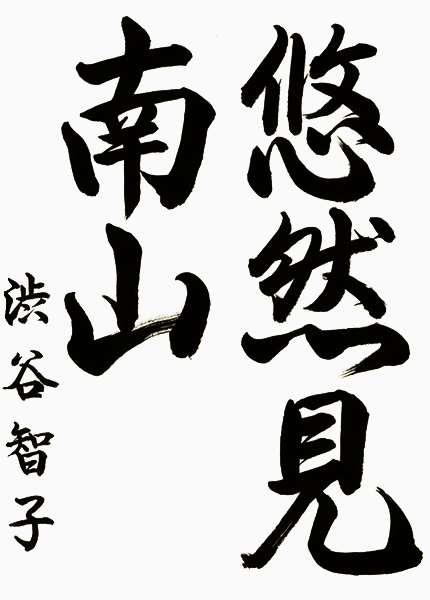 悠然見
南山
渋谷智子